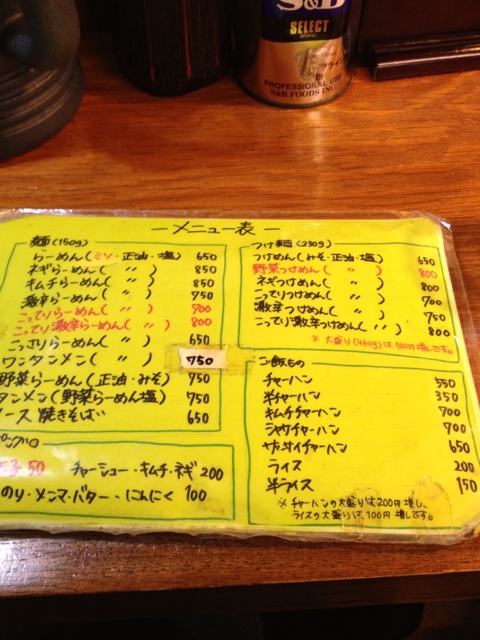 S&B
SELECT
BRAND
PROFESSIONAL USE
S&B FOODS INC.
ーメニュー表ー
麺(150g)
らーめん(ミソ・正油・塩) 650
ネギらーめん( 〃 ) 850
キムチらーめん( 〃 ) 850
激辛らーめん( 〃 ) 750
こってりらーめん( 〃 ) 700
こってり激辛らーめん( 〃 ) 800
こっさりらーめん( 〃 ) 650
ワンタンメン( 〃 ) 750
野菜らーめん(正油・みそ) 750
タンメン(野菜らーめん塩) 750
ース焼きそば 650
ピング
50 チャーシュー・キムチ・ネギ 200
のり・メンマ・バター・にんにく 100
つけ麺(230g)
つけめん(みそ・正油・塩) 650
野菜つけめん( 〃 ) 800
ネギつけめん( 〃 ) 800
こってりつけめん( 〃 ) 700
激辛つけめん( 〃 ) 750
こってり激辛つけめん( 〃 ) 800
※大盛り(460g)は100円増しです。
ご飯もの
チャーハン 550
半チャーハン 350
キムチチャーハン 700
シャケチャーハン 700
ザーサイチャーハン 650
ライス 200
半ライス 150
※チャーハンの大盛りは200円増し、
ライスの大盛りは100円増しです。